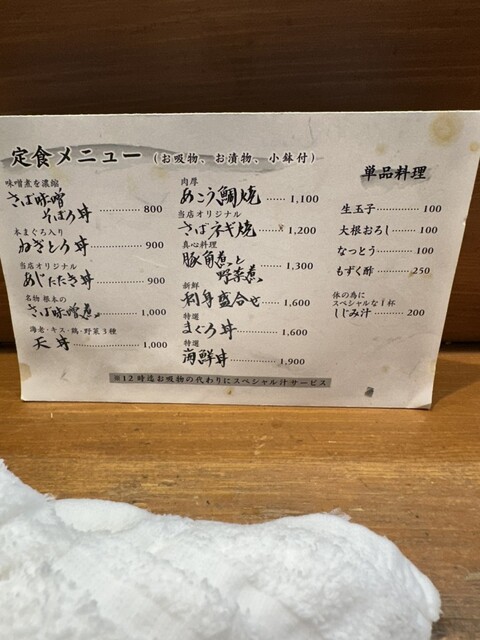 定食メニュー（お吸物、お漬物、小鉢付）
味噌煮を濃縮
さば味噌
そぼろ丼 ………… 800
本まぐろ入り
ねぎとろ丼 ………… 900
当店オリジナル
あじたたき丼 ………… 900
名物 根本の
さば味噌煮 ………… 1,000
海老・キス・鶏・野菜3種
天丼 ………… 1,000
肉厚
あこう鯛焼 …… 1,100
当店オリジナル
さばネギ焼 …… 1,200
真心料理
豚角煮と
野菜煮 …… 1,300
新鮮
刺身盛合せ …… 1,600
特選
まぐろ丼 …… 1,600
特選
海鮮丼 …… 1,900
単品料理
生玉子 ………… 100
大根おろし …… 100
なっとう ……… 100
もずく酢 ……… 250
体の為に
スペシャルな1杯
しじみ汁 ……… 200
※12時迄お吸物の代わりにスペシャル汁サービス